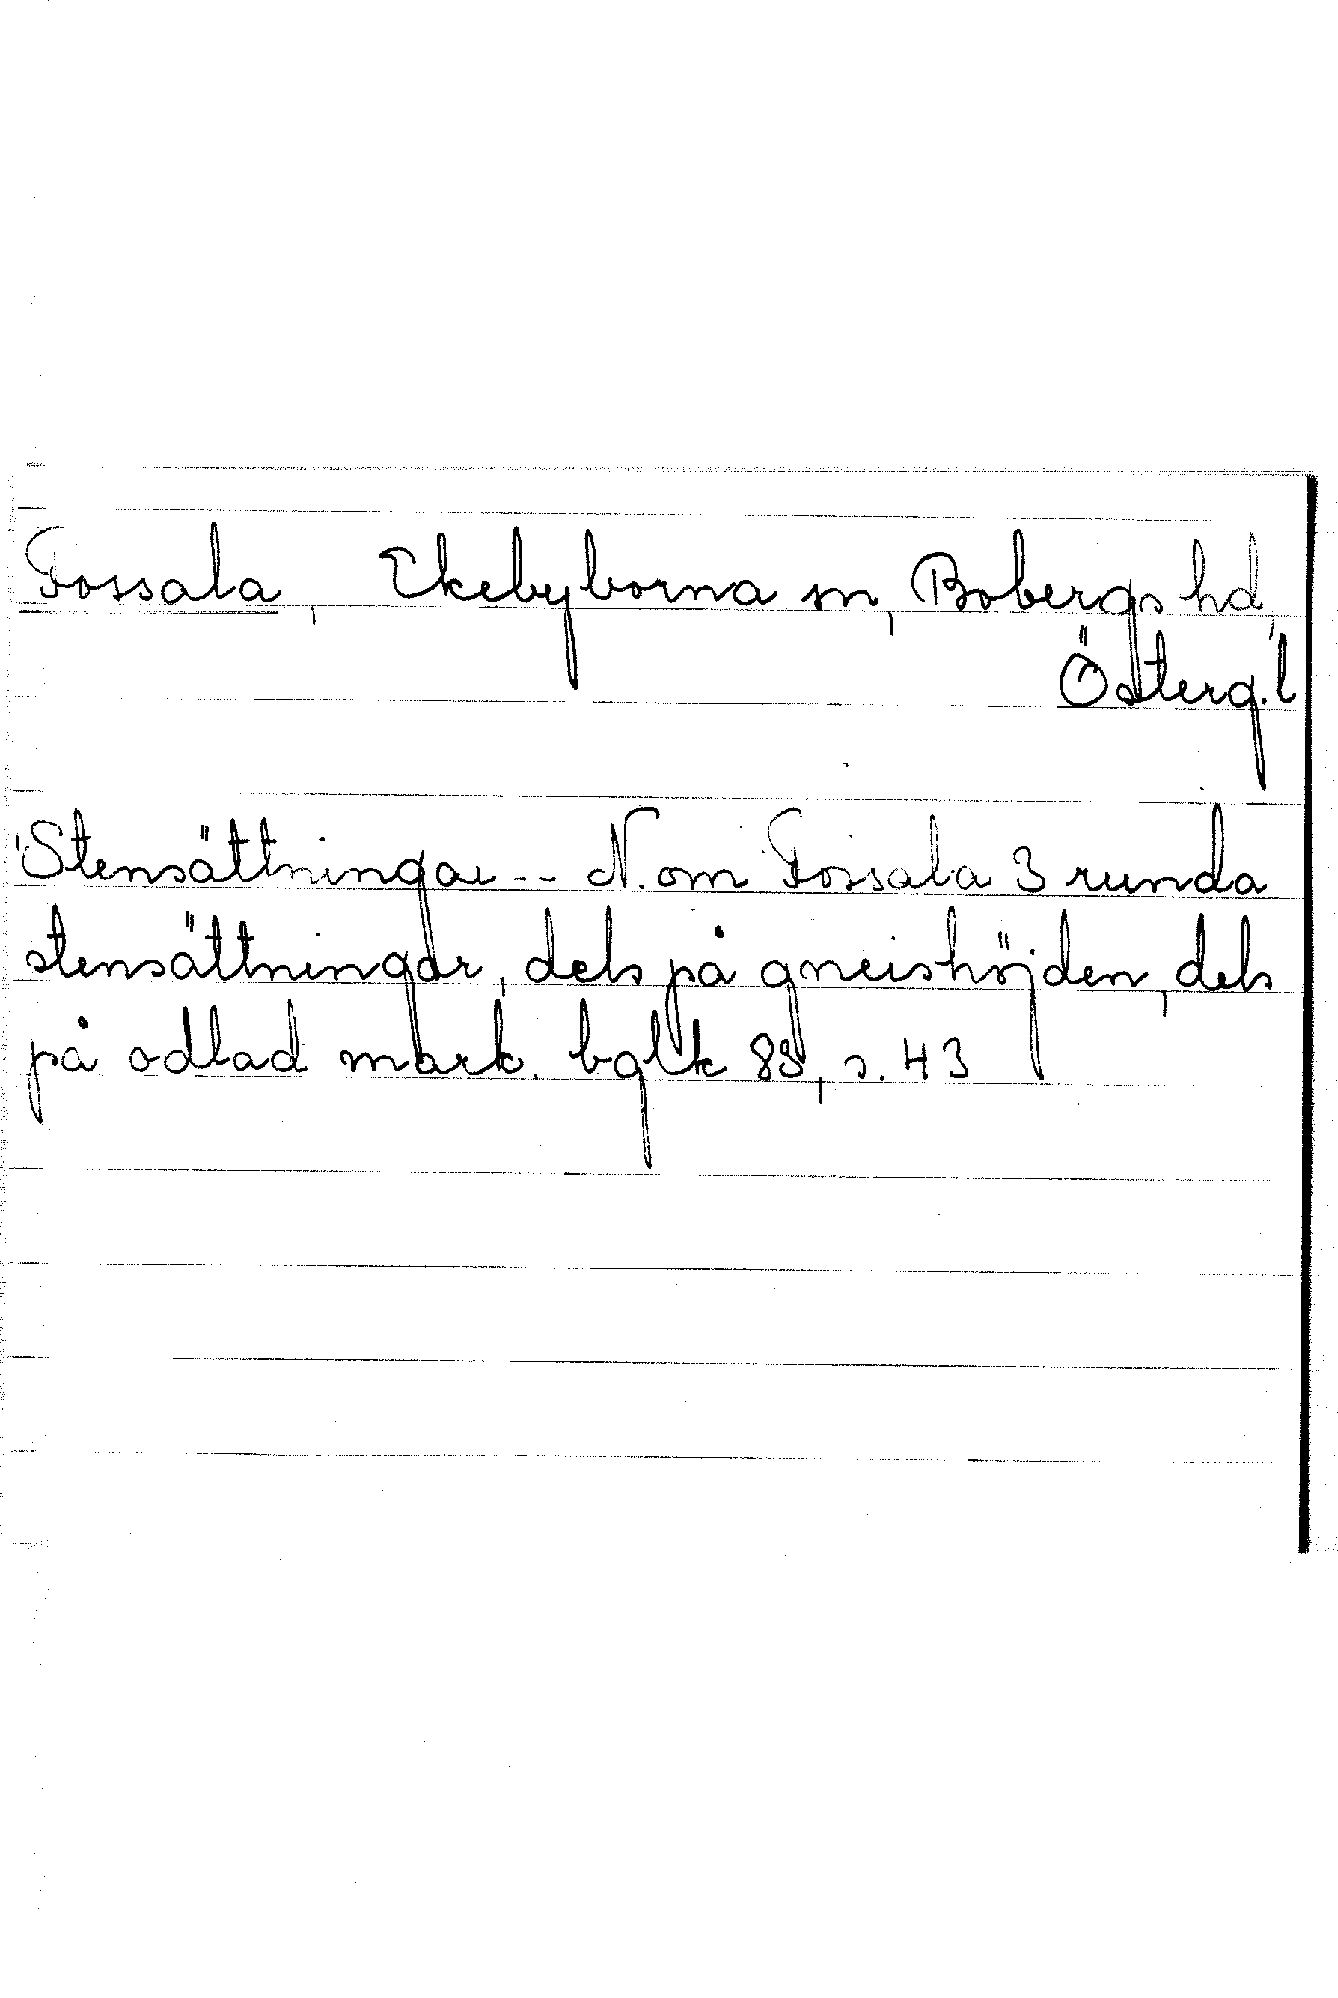 Fossala, Ekebyborna sn, Bobergs hd,
Österg.l
Stensättningar -- N. om Fossala 3 runda
stensättningar, dels på gneishöjden, dels
på odlad mark. bglk 83, s. 43